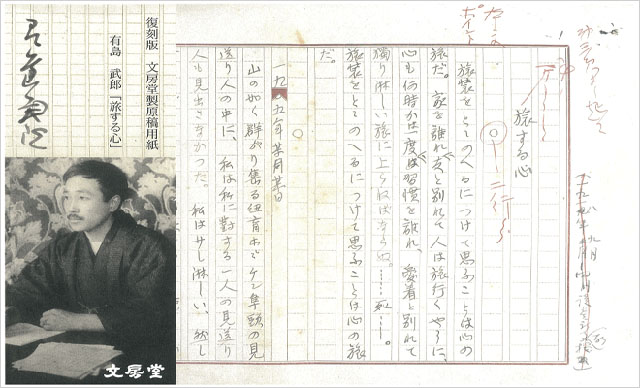 復刻版　文房堂製原稿用紙
有島　武郎「旅する心」
文房堂
ポイント
旅する心
旅装をとゝのへるにつけて思ふことは心の
旅だ。家を離れ友と別れて人は旅行くやうに、
心も何時かは一度は習慣を離れ、愛着と別れて
獨り淋しい旅に上らねばならぬ。……死……。
旅装をとゝのへるにつけて思ふことは心の旅
だ。
一九 五年某月某日
山の如く群がり集る紐育ホボケン 頭の見
送り人の中に、私は私に對する一人の見送り
人も見出さなかつた。私は少し淋しい、然し